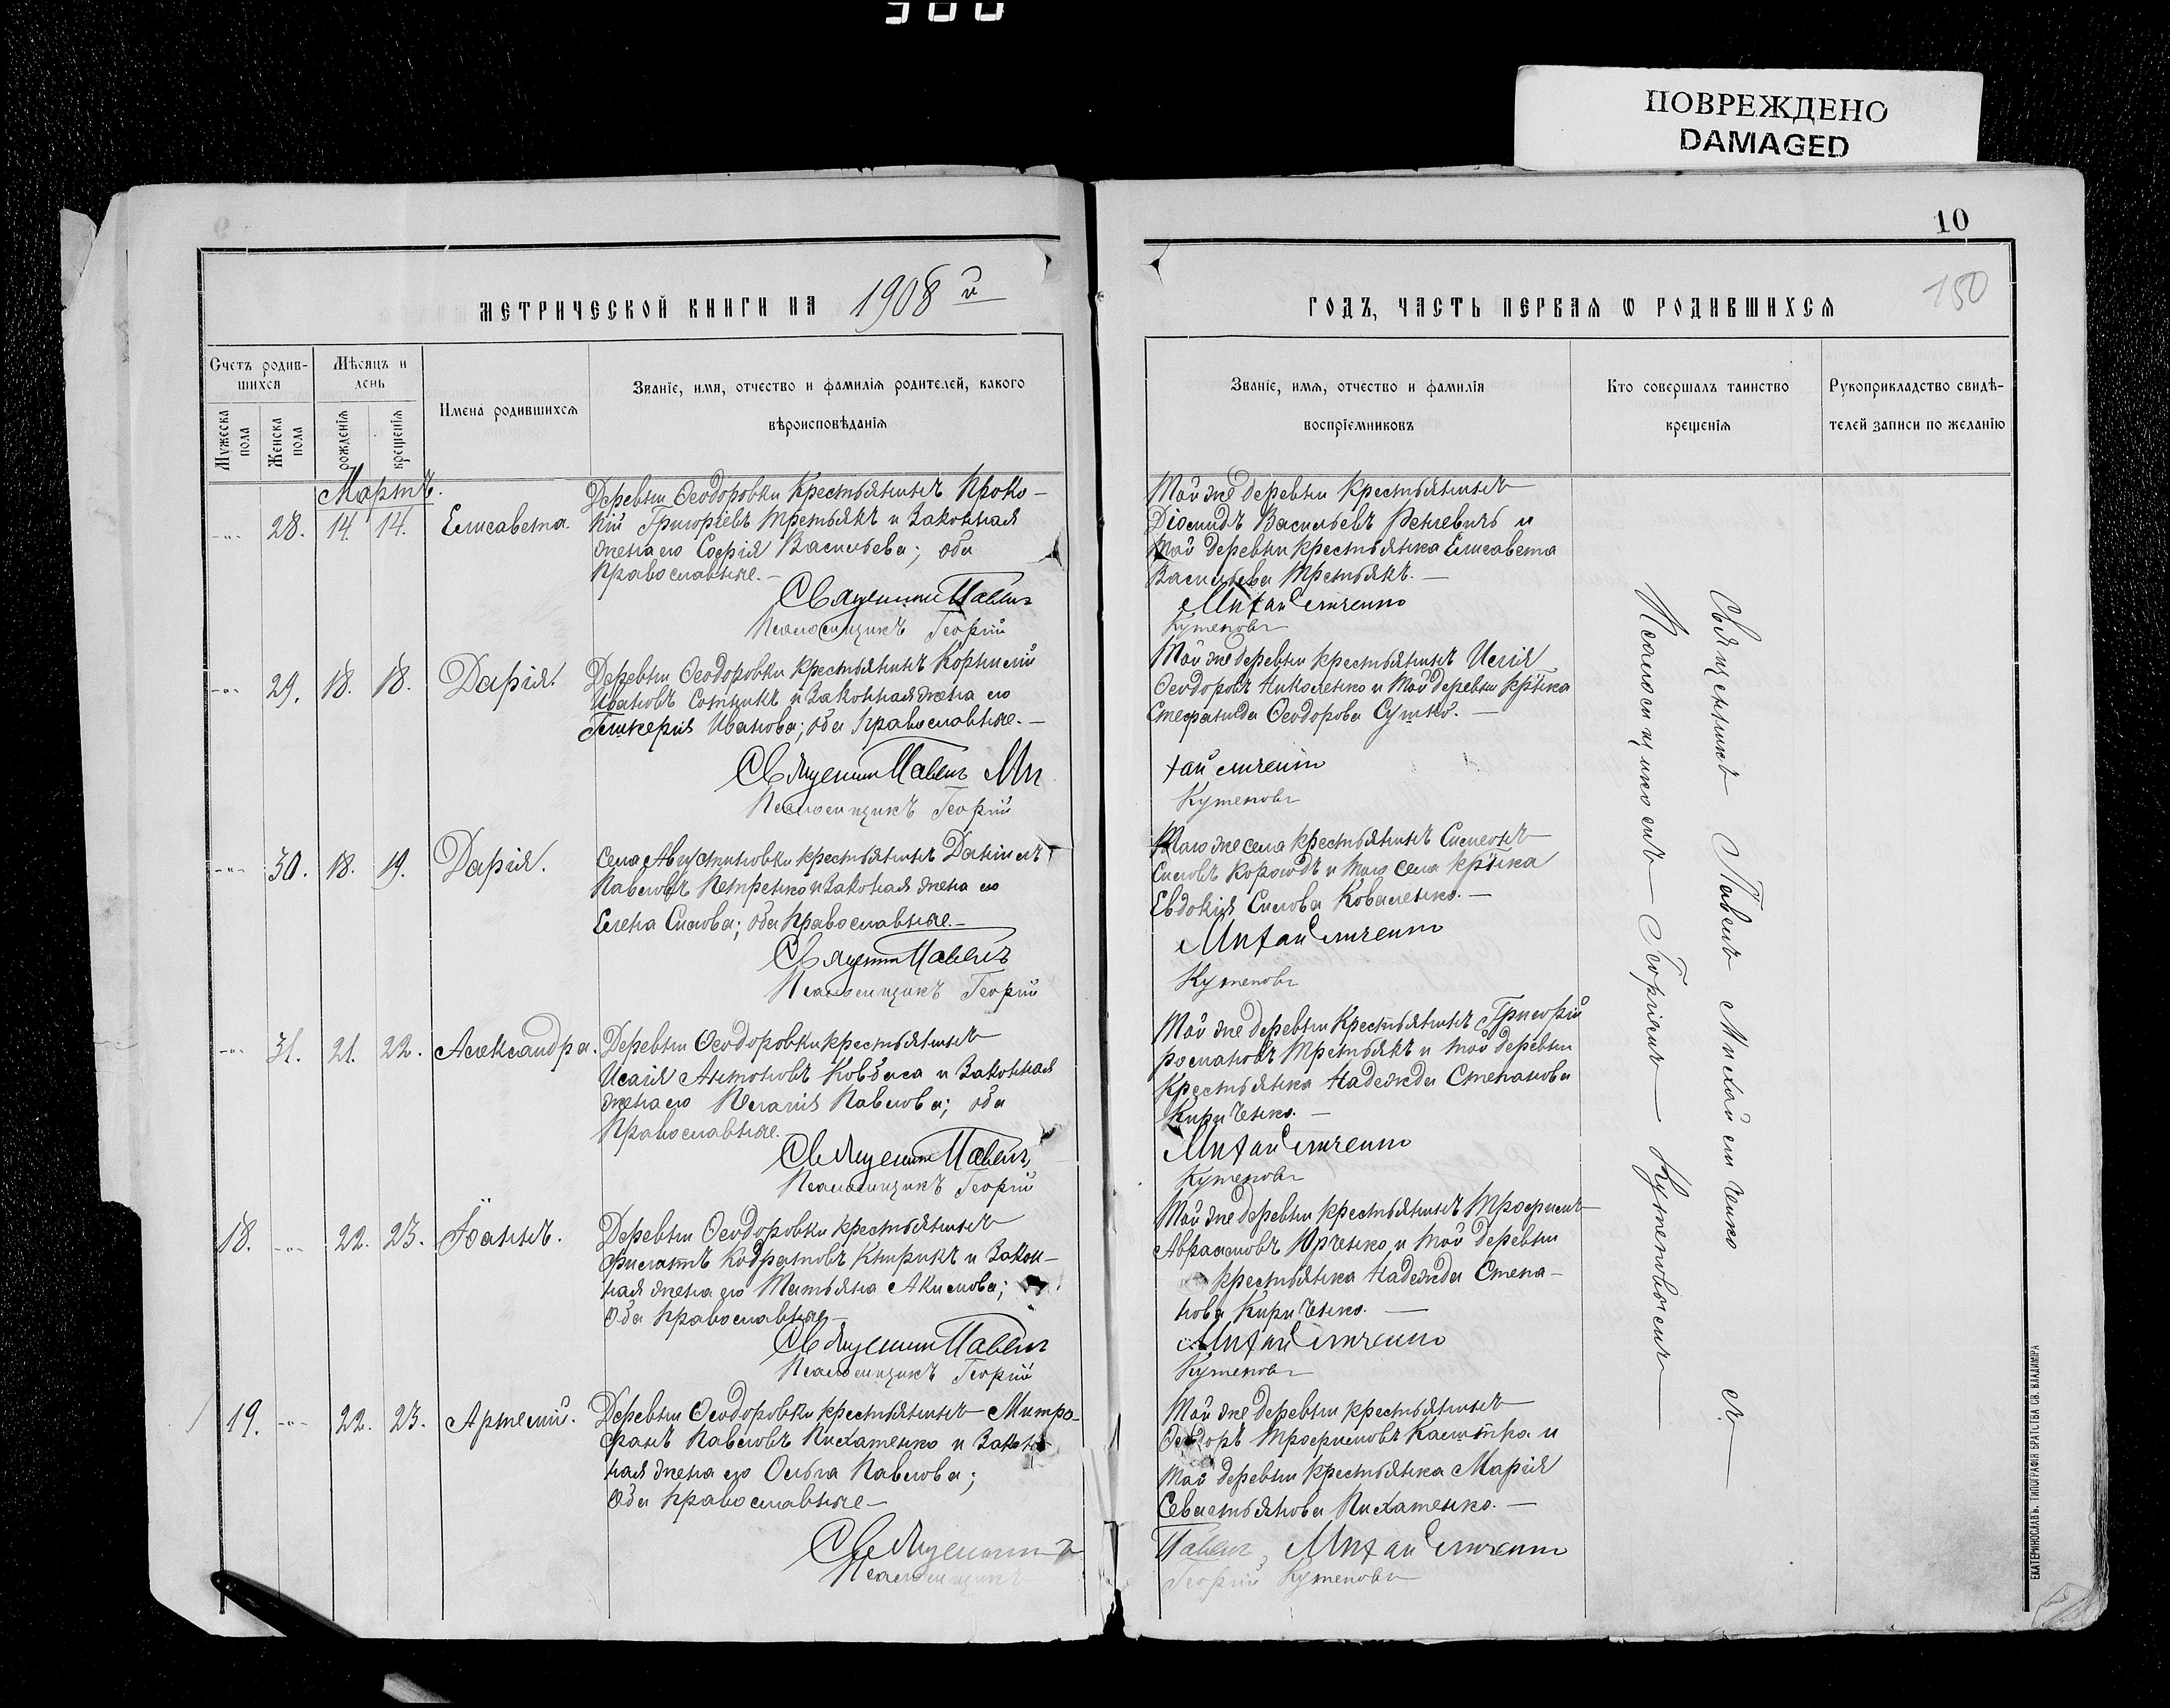 300
ПОВРЕЖДЕНО
DAMAGED
10
150
МЕТРИЧЕСКОЙ КНИГИ НА 1908й
ГОДЪ, ЧАСТЬ ПЕРВАЯ Ѡ РОДИВШИХСЯ
Счетъ родив-
шихся
Мужеска пола
Женска пола
Мѣсяцъ и
день
рожденія
крещенія
Имена родившихся
Званіе, имя, отчество и фамилія родителей, какого
вѣроисповѣданія
Званіе, имя, отчество и фамилія
воспріемниковъ
Кто совершалъ таинство
крещенія
Рукоприкладство свидѣ-
телей записи по желанію
Мартъ.
28. 14. 14. Елисавета.
Деревни Ѳеодоровки крестьянинъ Проко-
пій Григоріевъ Третьякъ и законная
жена его Софія Васильева; оба
православные.—
Священникъ Павелъ
Псаломщикъ Георгій
Той же деревни крестьянинъ
Діомидъ Васильевъ и
той деревни крестьянка Елисавета
Васильева Третьякъ.—
Михайличенко
Кутеповъ
29. 18. 18. Дарія.
Деревни Ѳеодоровки крестьянинъ Корнилій
Ивановъ Сотникъ и законная жена его
Гликерія Иванова; оба православные.—
Священникъ Павелъ Ми
Псаломщикъ Георгій
Той же деревни крестьянинъ Илія
Ѳеодоровъ Николенко и той деревни кр-нка
Стефанида Ѳеодорова Сушко.—
хайличенко
Кутеповъ
30. 18. 19. Дарія.
Села Августиновки крестьянинъ Даніилъ
Павловъ Петренко и законная жена его
Елена Силова; оба православные.—
Священникъ Павелъ
Псаломщикъ Георгій
Того же села крестьянинъ Симеонъ
Силовъ Короводъ и того села кр-нка
Евдокія Силова Коваленко.—
Михайличенко
Кутеповъ
31. 21. 22. Александра.
Деревни Ѳеодоровки крестьянинъ
Исаія Антоновъ Ковбаса и законная
жена его Пелагія Павлова; оба
православные.
Священникъ Павелъ
Псаломщикъ Георгій
Той же деревни крестьянинъ Григорій
Романовъ Третьякъ и той деревни
крестьянка Надежда Степанова
Кириченко.—
Михайличенко
Кутеповъ
18. 22. 23. Іоаннъ.
Деревни Ѳеодоровки крестьянинъ
Филиппъ Кодратовъ и закон-
ная жена его Татьяна Акимова;
оба православные—
Священникъ Павелъ
Псаломщикъ Георгій
Той же деревни крестьянинъ Трофимъ
Авраамовъ Юрченко и той деревни
крестьянка Надежда Степа-
нова Кириченко.—
Михайличенко
Кутеповъ
19. 22. 23. Артемій.
Деревни Ѳеодоровки крестьянинъ Митро-
фанъ Павловъ Пихатенко и закон-
ная жена его Ольга Павлова;
оба православные—
Священникъ
Псаломщикъ
Той же деревни крестьянинъ
Ѳеодоръ Трофимовъ и
той деревни крестьянка Марія
Севастьянова Пихатенко.—
Павелъ Михайличенко
Георгій Кутеповъ
Священникъ Павелъ Михайличенко съ
Псаломщикомъ Георгіемъ Кутеповымъ
ЕКАТЕРИНОСЛАВЪ. ТИПОГРАФІЯ БРАТСТВА СВ. ВЛАДИМІРА